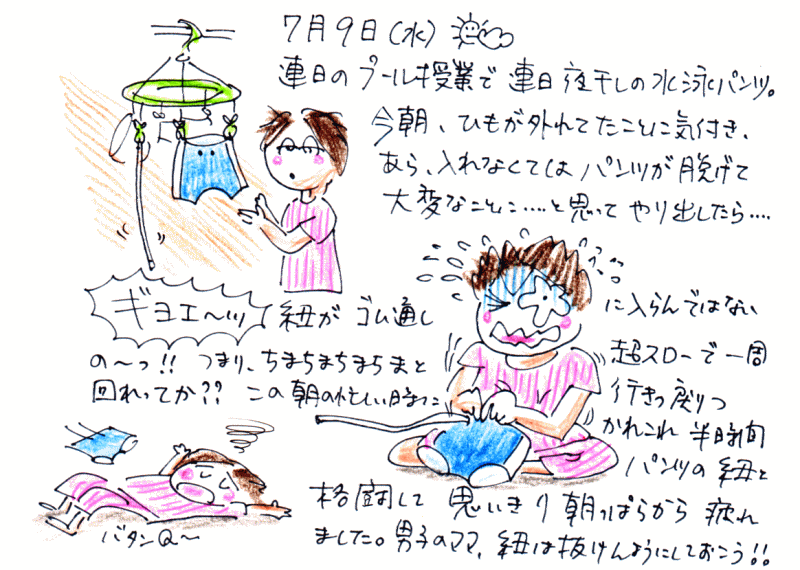 7月9日(水)
連日のプール授業で連日夜干しの水泳パンツ。
今朝、ひもが外れてたことに気付き、
あら、入れなくてはパンツが脱げて
大変なことに‥‥と思ってやり出したら‥‥
ギョエ〜ッ 紐がゴム通し
に入らんではない
の〜っ!! つまり、ちまちまちまちまと
回れってか?? この朝の忙しい時に
超スローで一周
行きつ戻りつ
かれこれ半時間
パンツの紐と
格闘して思いきり朝っぱらから疲れ
ました。男子のママ、紐は抜けんようにしておこう!!
バタンQ〜